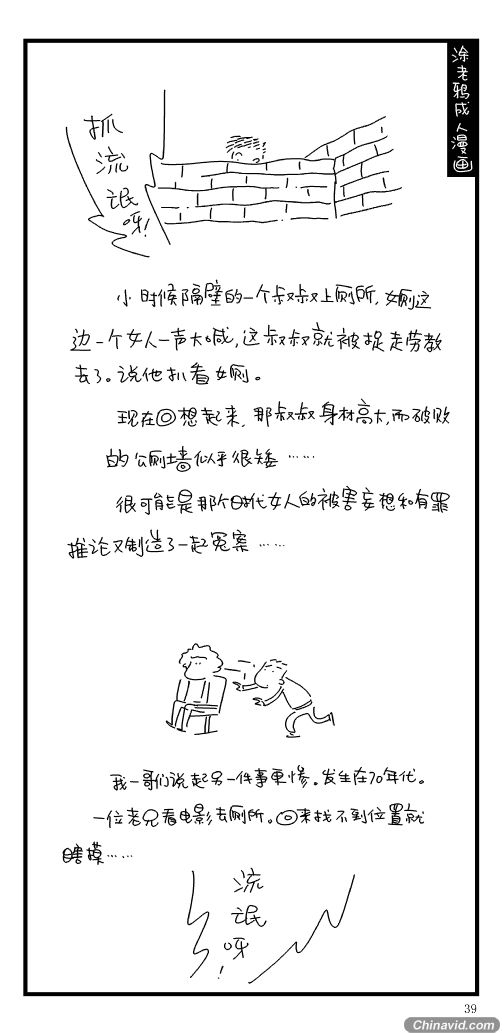 涂老鸦成人漫画
抓
流
氓
呀!
小时候隔壁的一个叔叔上厕所,女厕这
边一个女人一声大喊,这叔叔就被捉走劳教
去了。说他扒看女厕。
现在回想起来,那叔叔身材高大,而破败
的公厕墙似乎很矮……
很可能是那个时代女人的被害妄想和有罪
推论又制造了一起冤案……
我一哥们说起另一件事更惨。发生在70年代。
一位老兄看电影去厕所。回来找不到位置就
瞎摸……
流
氓
呀!
39
Chinavid.com